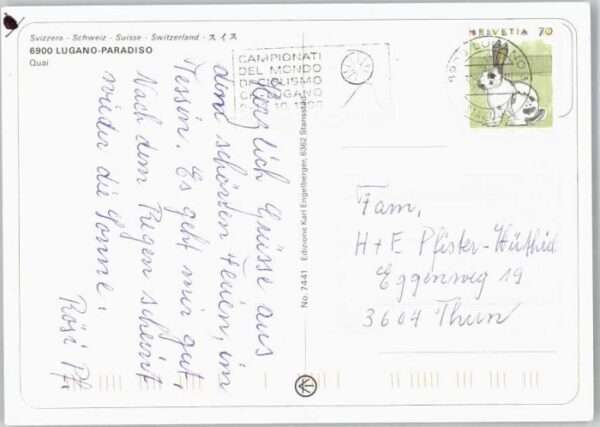 Svizzera · Schweiz · Suisse · Switzerland · スイス
6900 LUGANO-PARADISO
Quai
HELVETIA 70
CAMPIONATI
DEL MONDO
DI CICLISMO
LUGANO
Herzlich Grüsse aus
dem schönen Ferien, im
Tessin. Es geht mir gut,
Nach dem Regen scheint
wieder die Sonne.
Rösi Pf.
No. 7441 Edizione Karl Engelberger, 6362 Stansstad
Fam,
H+E Pfister-
Eggenweg 19
3604 Thun